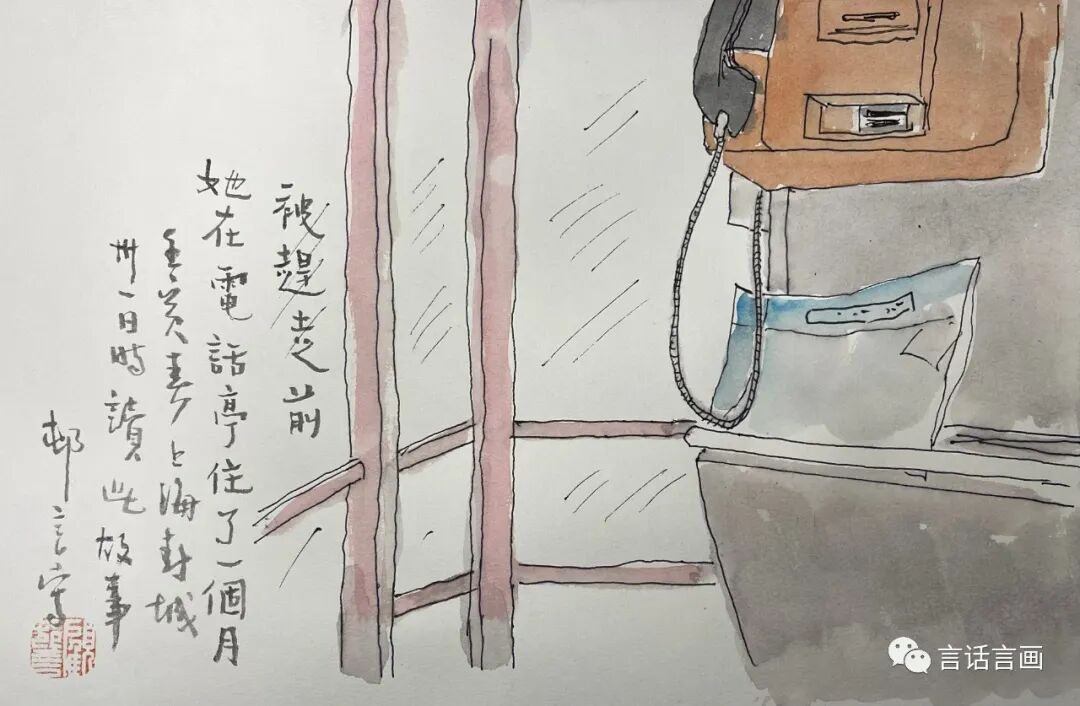 被趕走前
她在電話亭住了一個月
壬寅春上海封城
卅一日時讀此故事
邨言寫
言话言画